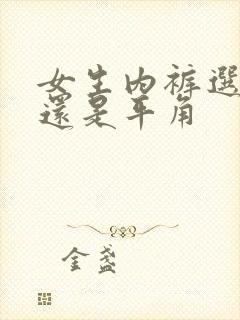 女生内裤選
還是平角
金盏